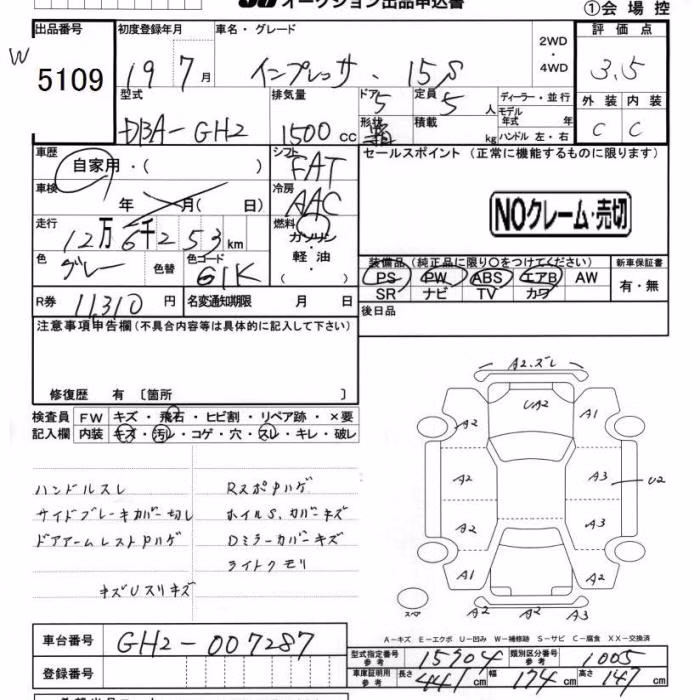 オークション出品申込書
①会場控
W
出品番号
5109
初度登録年月
19 7 月
車名・グレード
インプレッサ . 15S
2WD
・
4WD
評価点
3.5
外装 内装
C C
型式
DBA-GH2
排気量
1500 cc
ドア
5
定員
5 人
ディーラー・並行
モデル
年式 年
形状
積載
kg
ハンドル 左・右
車歴
自家用・( )
シフト
FAT
セールスポイント (正常に機能するものに限ります)
車検
年 月( 日)
冷房
AAC
NOクレーム・売切
走行
12万6千253km
燃料
ガソリン
軽・油
( )
色
グレー
色替
色コード
61K
装備品 (純正品に限り○をつけてください)
新車保証書
PS PW ABS エアB AW
有・無
SR ナビ TV カワ
R券 11,310 円
名変通知期限 月 日
後日品
注意事項申告欄 (不具合内容等は具体的に記入して下さい)
修復歴 有 〔箇所 〕
検査員 FW キズ・飛石・ヒビ割・リペア跡・×要
記入欄 内装 キズ・汚レ・コゲ・穴・スレ・キレ・破レ
ハンドルスレ
RスポPハゲ
サイドブレーキカバー切レ
ホイルS、カバーキズ
ドアアームレストPハゲ
Dミラーカバーキズ
ライトクモリ
キズUスリキズ
A2.ズレ
UA2
A2 A1
A2 A3 U2
A2 A3
A1 A2
スペア
A2 A2 A3
A-キズ E-エクボ U-凹み W-補修跡 S-サビ C-腐食 XX-交換済
車台番号
GH2-007287
登録番号
型式指定番号
参考
15904
類別区分番号
参考
1005
車庫証明用
参考
長さ 441 cm
幅 174 cm
高さ 147 cm